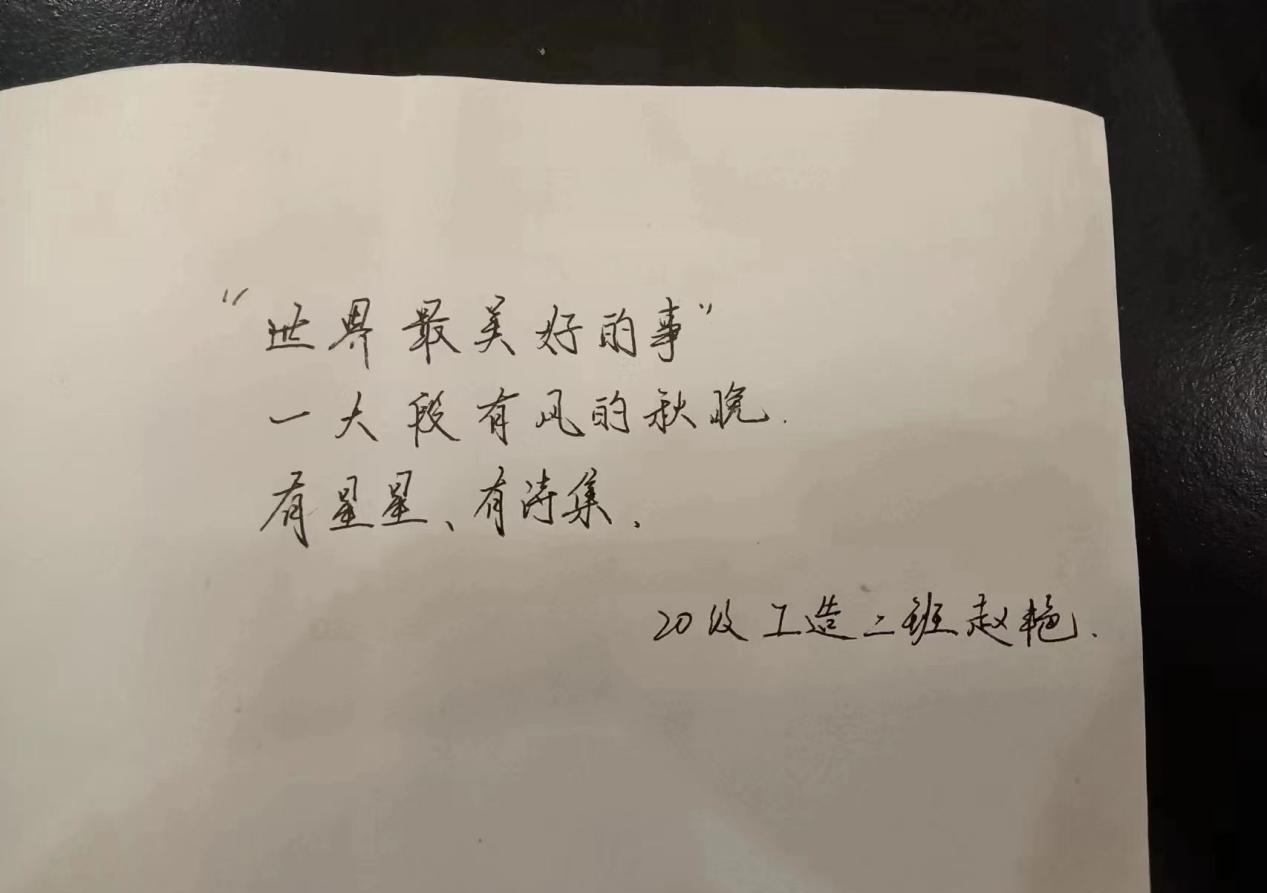 “世界最美好的事”
一大段有风的秋晚.
有星星、有诗集、
20级工造二班赵艳.